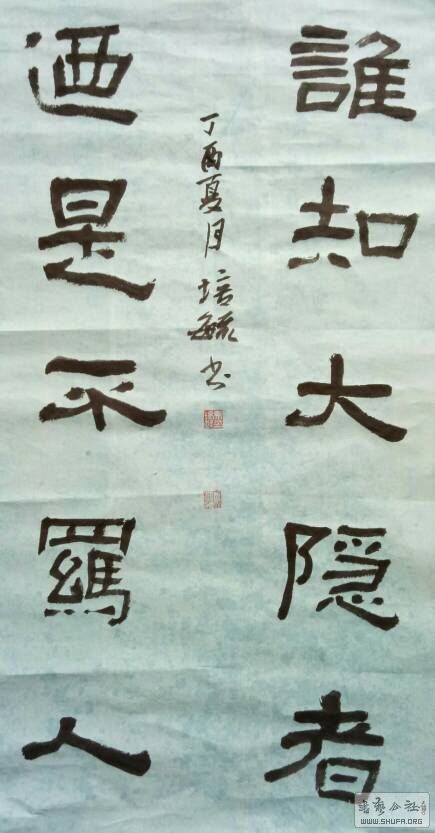 誰知大隐者
迺是不羈人
丁酉夏月培毓书
書藝公社
WWW.SHUFA.ORG